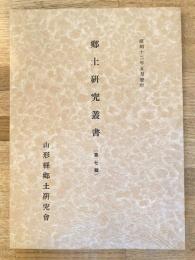 昭和十二年五月發行
郷土研究叢書
(第七輯)
山形縣郷土研究會